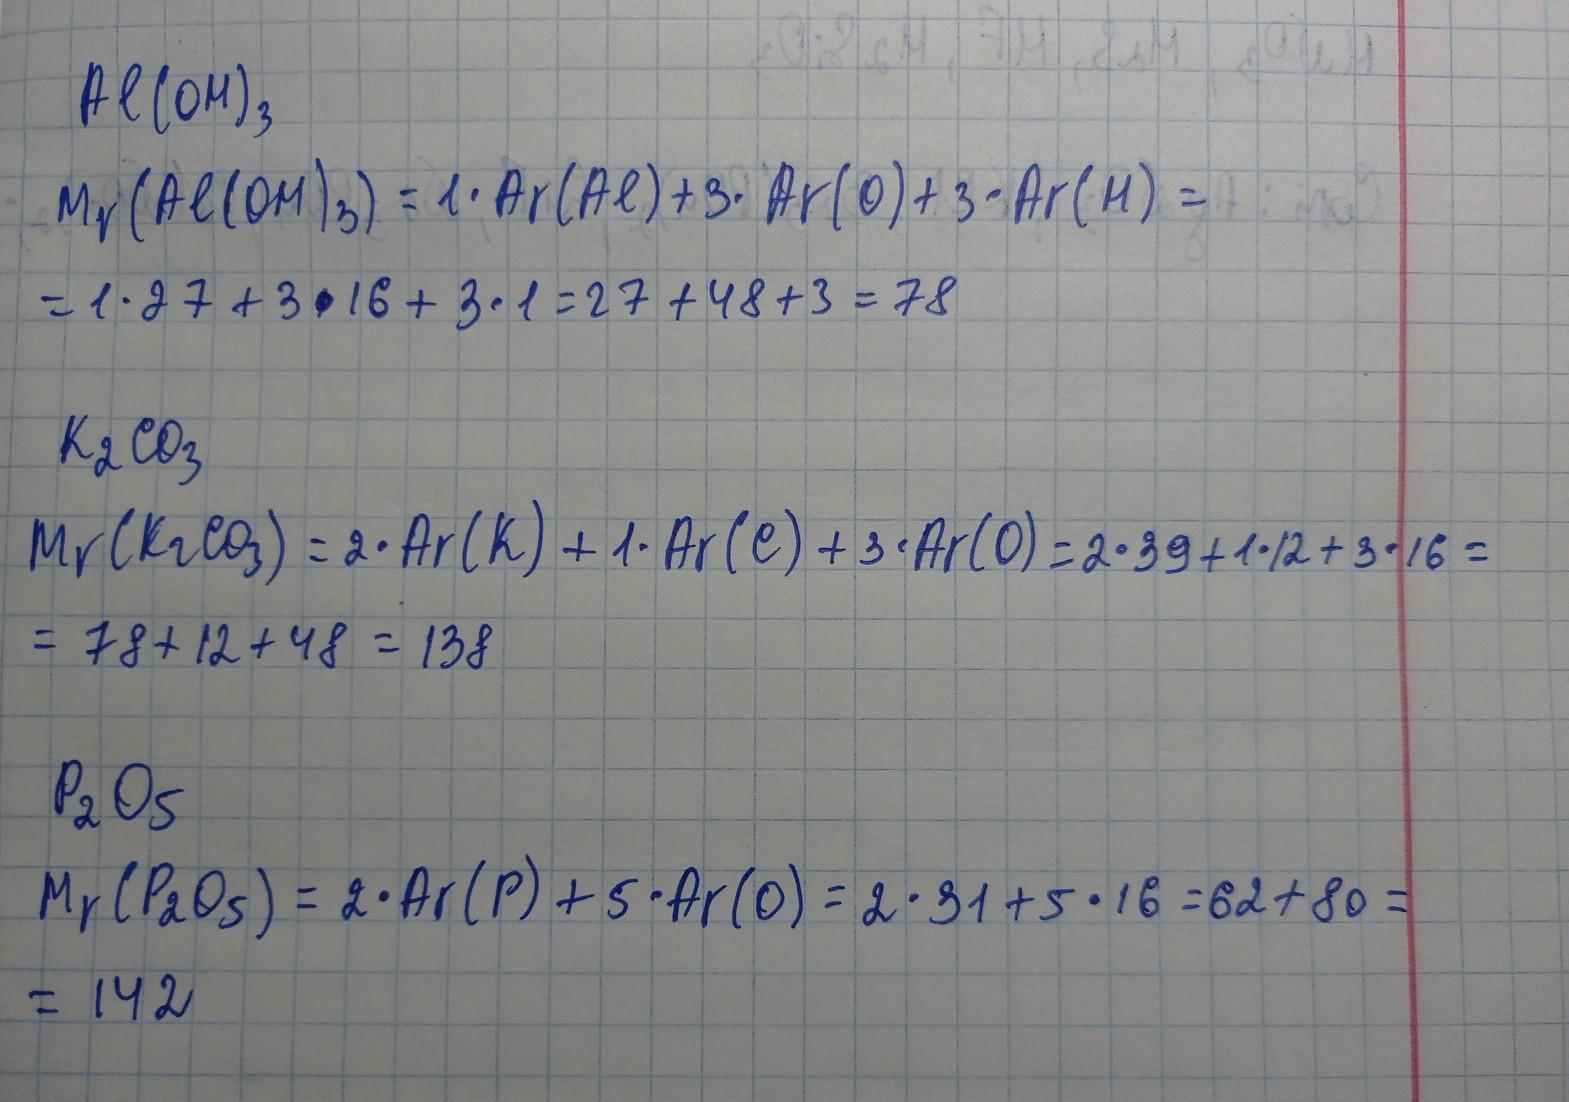 Al(OH)₃
Mr(Al(OH)₃) = 1·Ar(Al)+3·Ar(O)+3·Ar(H) =
= 1·27+3·16+3·1=27+48+3=78
K₂CO₃
Mr(K₂CO₃) = 2·Ar(K)+1·Ar(C)+3·Ar(O)=2·39+1·12+3·16=
= 78+12+48 = 138
P₂O₅
Mr(P₂O₅) = 2·Ar(P)+5·Ar(O)=2·31+5·16=62+80=
= 142